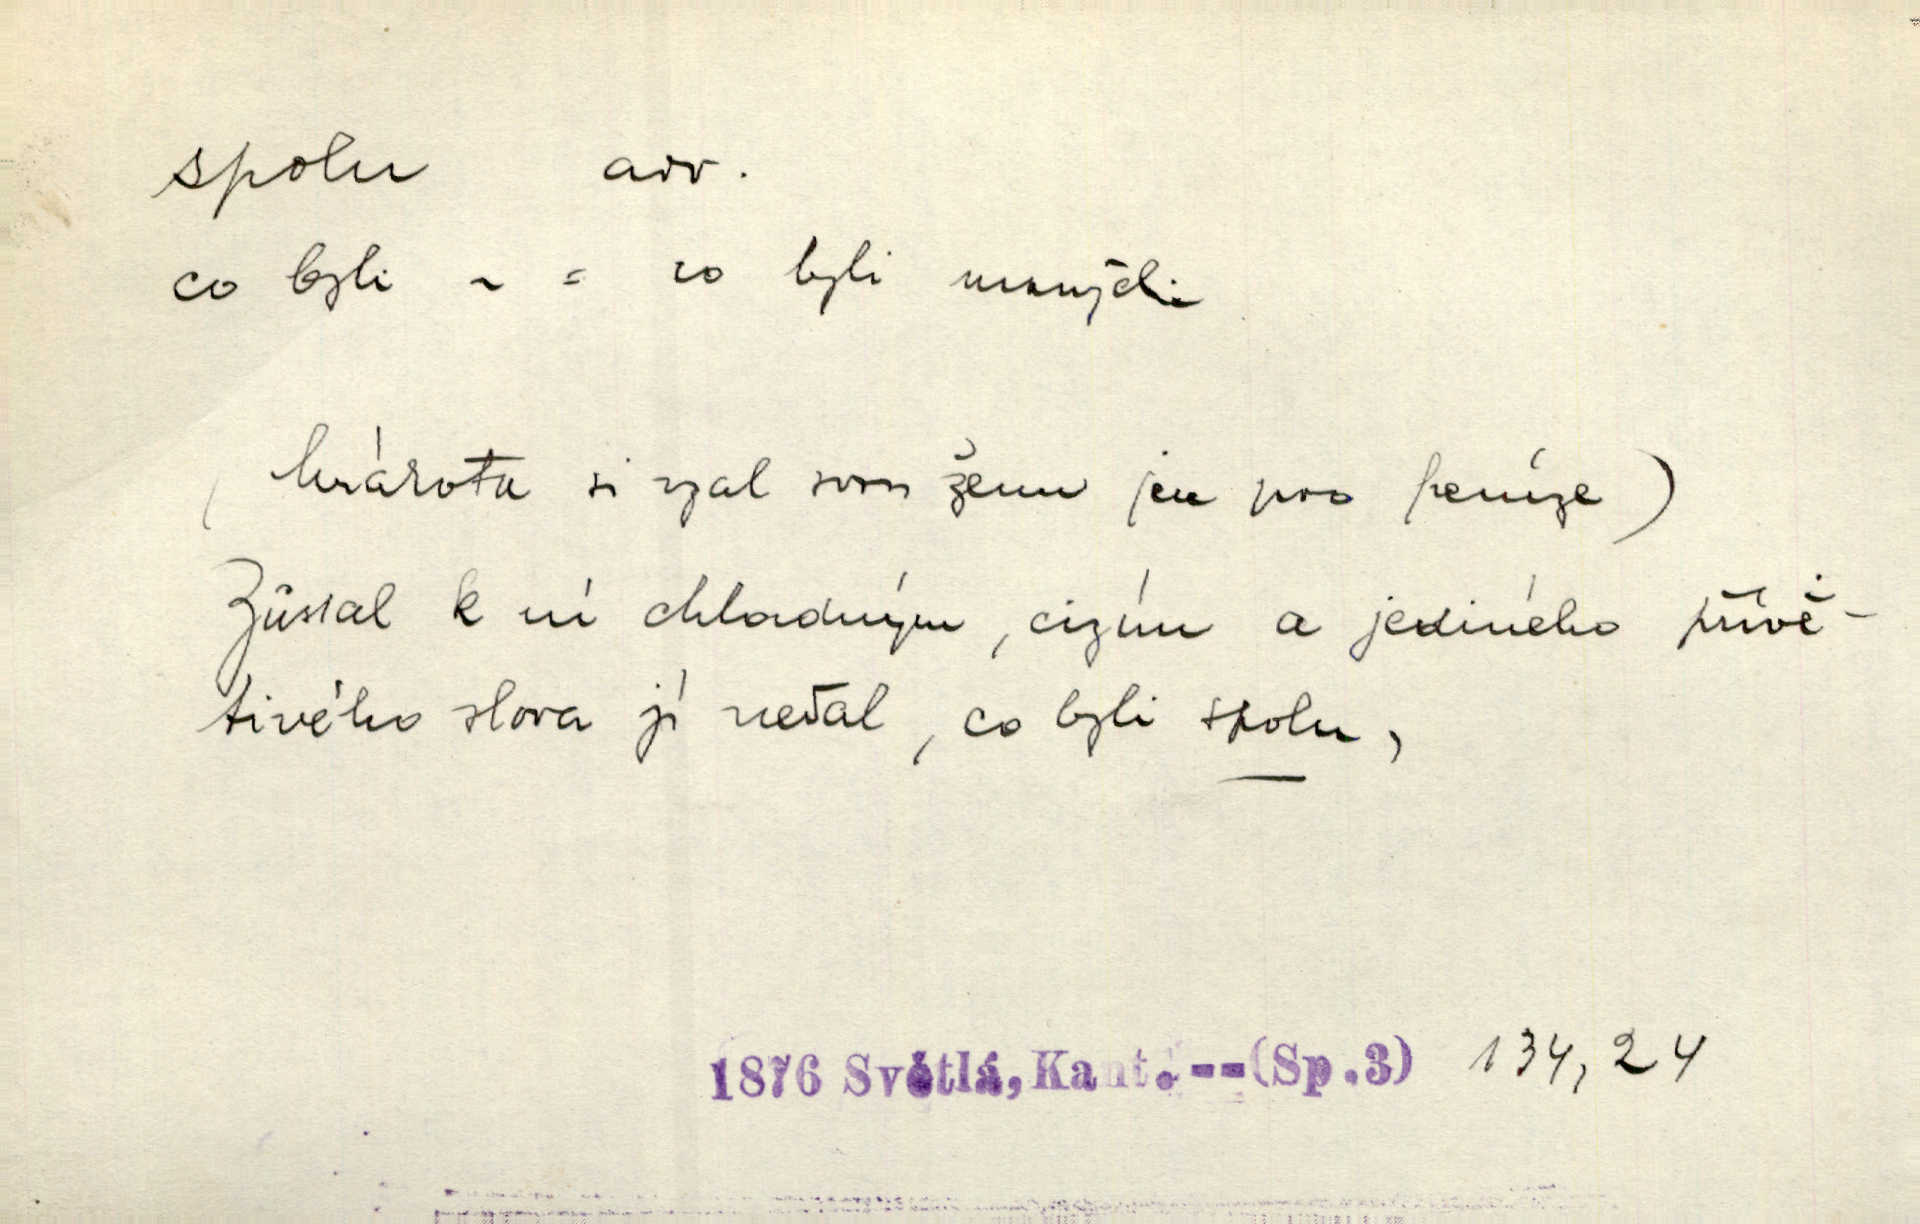 spolu adv.
co byli ~ = co byli manželi
( si vzal svou ženu jen pro peníze )
Zůstal k ní chladným, cizím a jediného přívě-
tivého slova jí nedal, co byli spolu,
1876 Světlá, Kant. --(Sp.3) 134,24